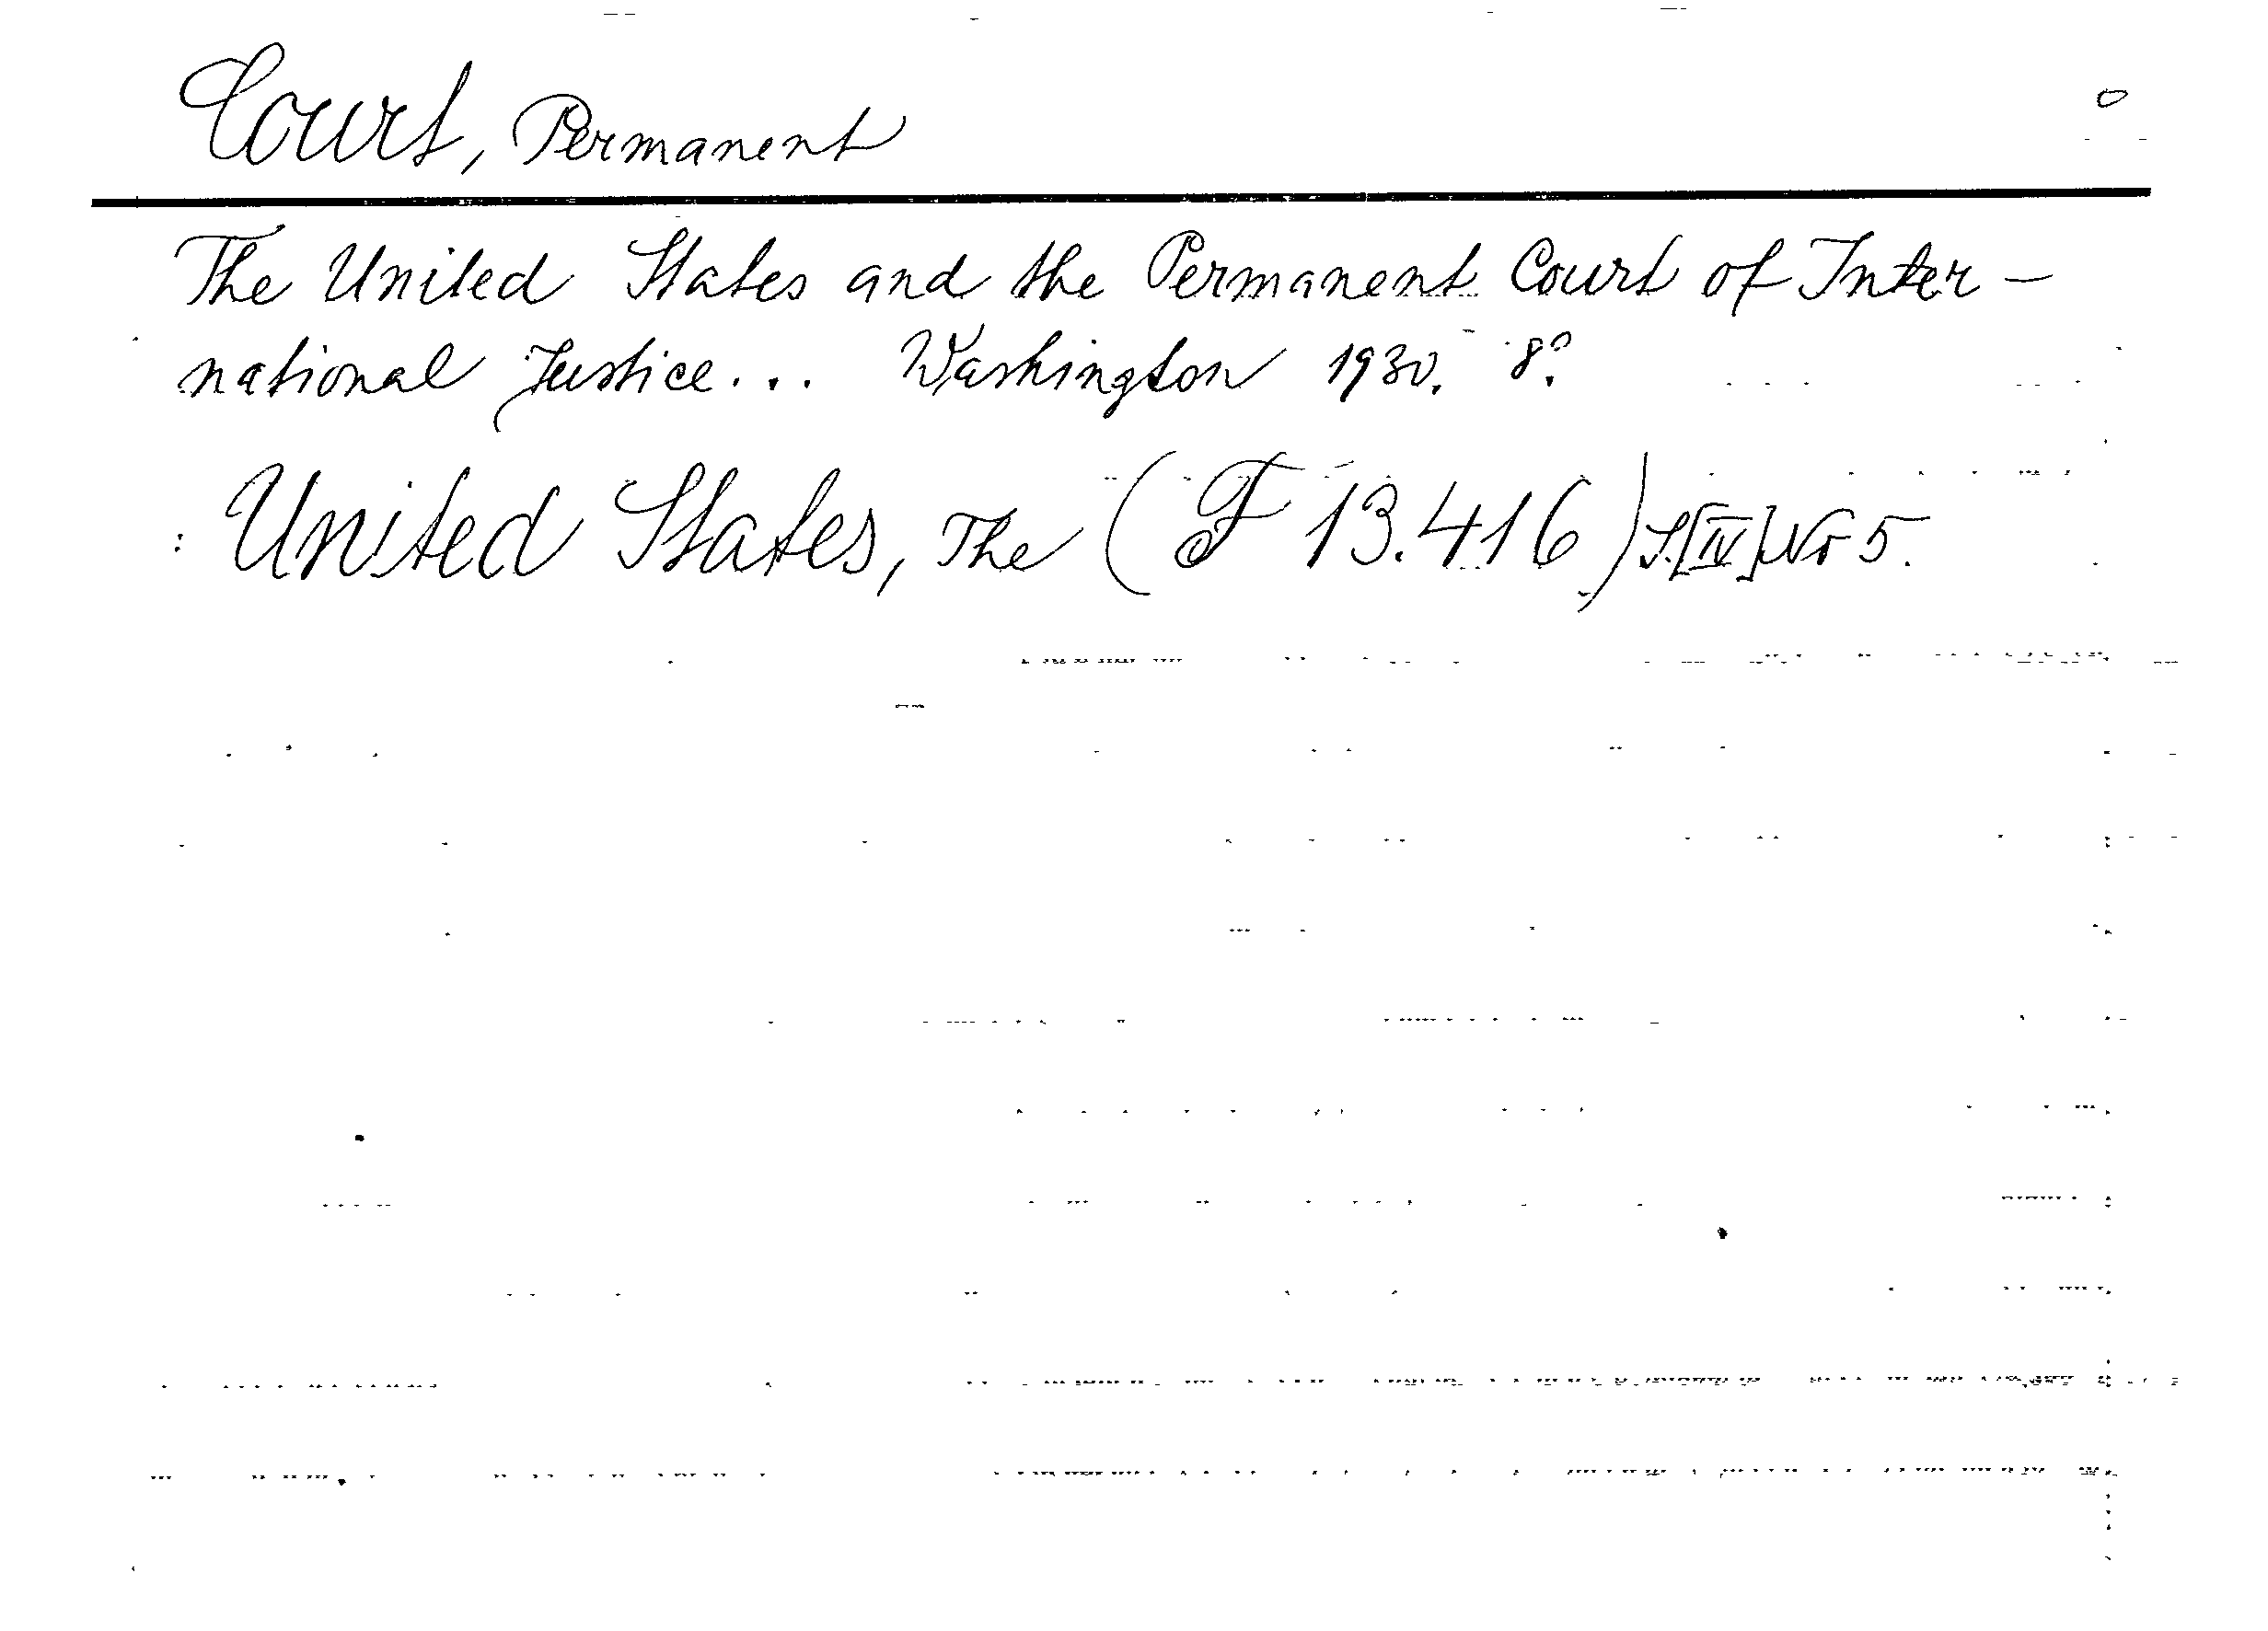 Court, Permanent
The United States and the Permanent Court of Inter-
national Justice... Washington 1930. 8°.
: United States, The (F 13.416) S.[IV] Nr 5.